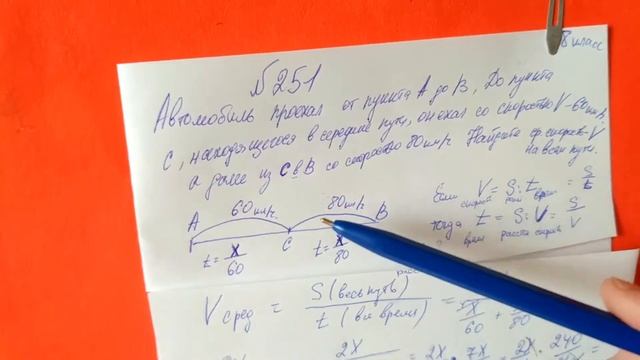 8 класс
№251
Автомобиль проехал от пункта А до В, До пункта
С, находящегося в середине пути, он ехал со скоростью V-60км/ч,
а далее из С в В со скоростью 80км/ч Найдите ср. скорость V
на всём пути.
Если V = S : t = S/t
скорость расст время
тогда t = S : V = S/V
время расст скорость
A 60км/ч. 80км/ч. B
C
t = x/60 t = x/80
Vсред = S (весь путь) / t (все время) =
x/60 + /80
2x = 2x : 7x = 2x · 240